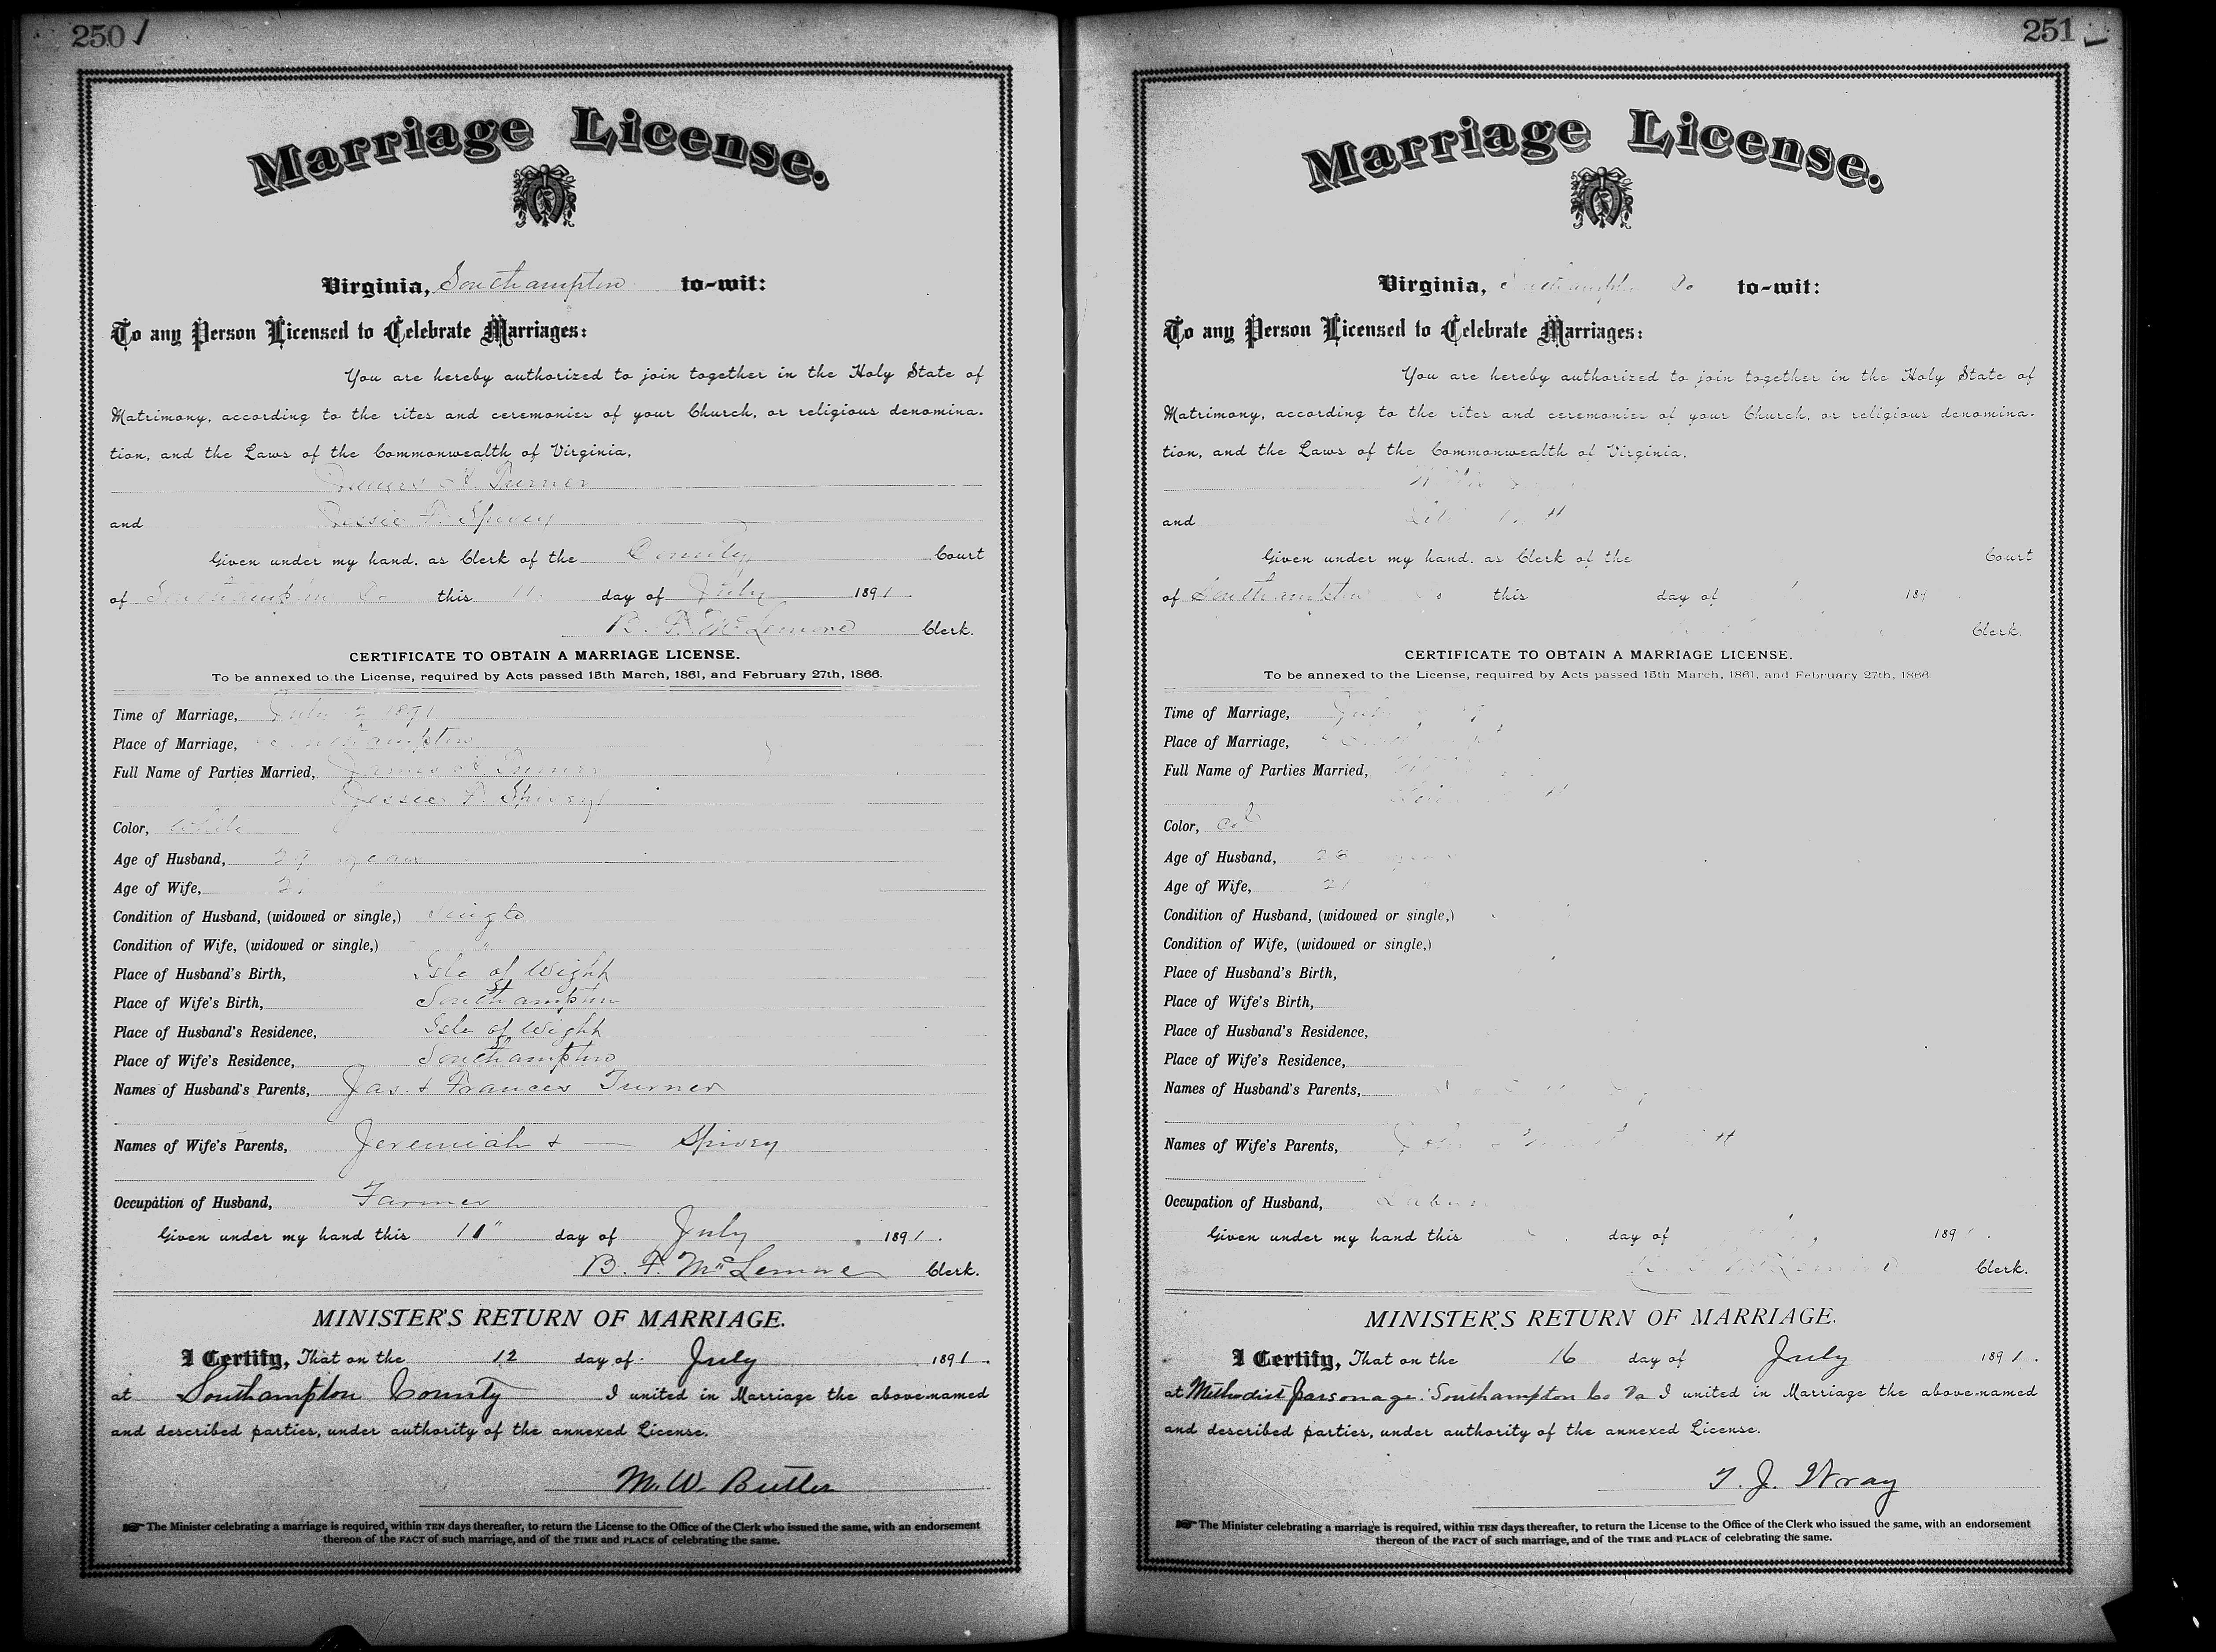 250
Marriage License.
Virginia, Southampton to-wit:
To any Person Licensed to Celebrate Marriages:
You are hereby authorized to join together in the Holy State of
Matrimony, according to the rites and ceremonies of your Church, or religious denomina-
tion, and the Laws of the Commonwealth of Virginia,
James A. Turner
and Jessie F. Spivey
Given under my hand, as Clerk of the County Court
of Southampton Co this 11 day of July 1891.
B. F. McLemore Clerk.
CERTIFICATE TO OBTAIN A MARRIAGE LICENSE.
To be annexed to the License, required by Acts passed 15th March, 1861, and February 27th, 1866.
Time of Marriage, July 12 1891
Place of Marriage, Southampton
Full Name of Parties Married, James A. Turner
Jessie F. Spivey
Color, White
Age of Husband, 29 years
Age of Wife,
Condition of Husband, (widowed or single,) Single
Condition of Wife, (widowed or single,) "
Place of Husband's Birth, Isle of Wight
Place of Wife's Birth, Southampton
Place of Husband's Residence, Isle of Wight
Place of Wife's Residence, Southampton
Names of Husband's Parents, Jas. & Frances Turner
Names of Wife's Parents, Jeremiah & — Spivey
Occupation of Husband, Farmer
Given under my hand this 11" day of July 1891.
B. F. McLemore Clerk.
MINISTER'S RETURN OF MARRIAGE.
I Certify, That on the 12 day of July 1891.
at Southampton County I united in Marriage the above-named
and described parties, under authority of the annexed License.
M. W. Butler
The Minister celebrating a marriage is required, within TEN days thereafter, to return the License to the Office of the Clerk who issued the same, with an endorsement
thereon of the FACT of such marriage, and of the TIME and PLACE of celebrating the same.
251
Marriage License.
Virginia, Southampton Co to-wit:
To any Person Licensed to Celebrate Marriages:
You are hereby authorized to join together in the Holy State of
Matrimony, according to the rites and ceremonies of your Church, or religious denomina-
tion, and the Laws of the Commonwealth of Virginia,
and
Given under my hand, as Clerk of the Court
of Southampton Co this day of 189
Clerk.
CERTIFICATE TO OBTAIN A MARRIAGE LICENSE.
To be annexed to the License, required by Acts passed 15th March, 1861, and February 27th, 1866
Time of Marriage, July
Place of Marriage,
Full Name of Parties Married,
Color, Col
Age of Husband,
Age of Wife, 21
Condition of Husband, (widowed or single,)
Condition of Wife, (widowed or single,)
Place of Husband's Birth,
Place of Wife's Birth,
Place of Husband's Residence,
Place of Wife's Residence,
Names of Husband's Parents,
Names of Wife's Parents, John
Occupation of Husband,
Given under my hand this day of 1891.
Clerk.
MINISTER'S RETURN OF MARRIAGE.
I Certify, That on the 16 day of July 1891.
at Methodist parsonage Southampton Co Va I united in Marriage the above-named
and described parties, under authority of the annexed License.
T. J. Wray
The Minister celebrating a marriage is required, within TEN days thereafter, to return the License to the Office of the Clerk who issued the same, with an endorsement
thereon of the FACT of such marriage, and of the TIME and PLACE of celebrating the same.